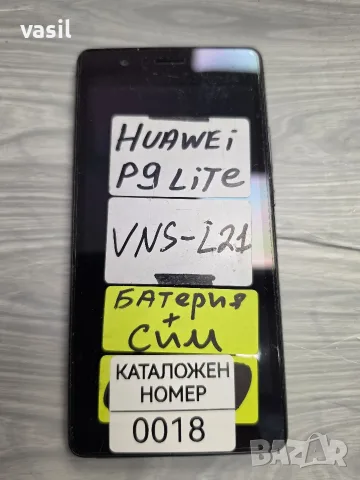 vasil
HUAWEI
P9 LITE
VNS-L21
БАТЕРИЯ
+
СИМ
КАТАЛОЖЕН
НОМЕР
0018
BAZAR